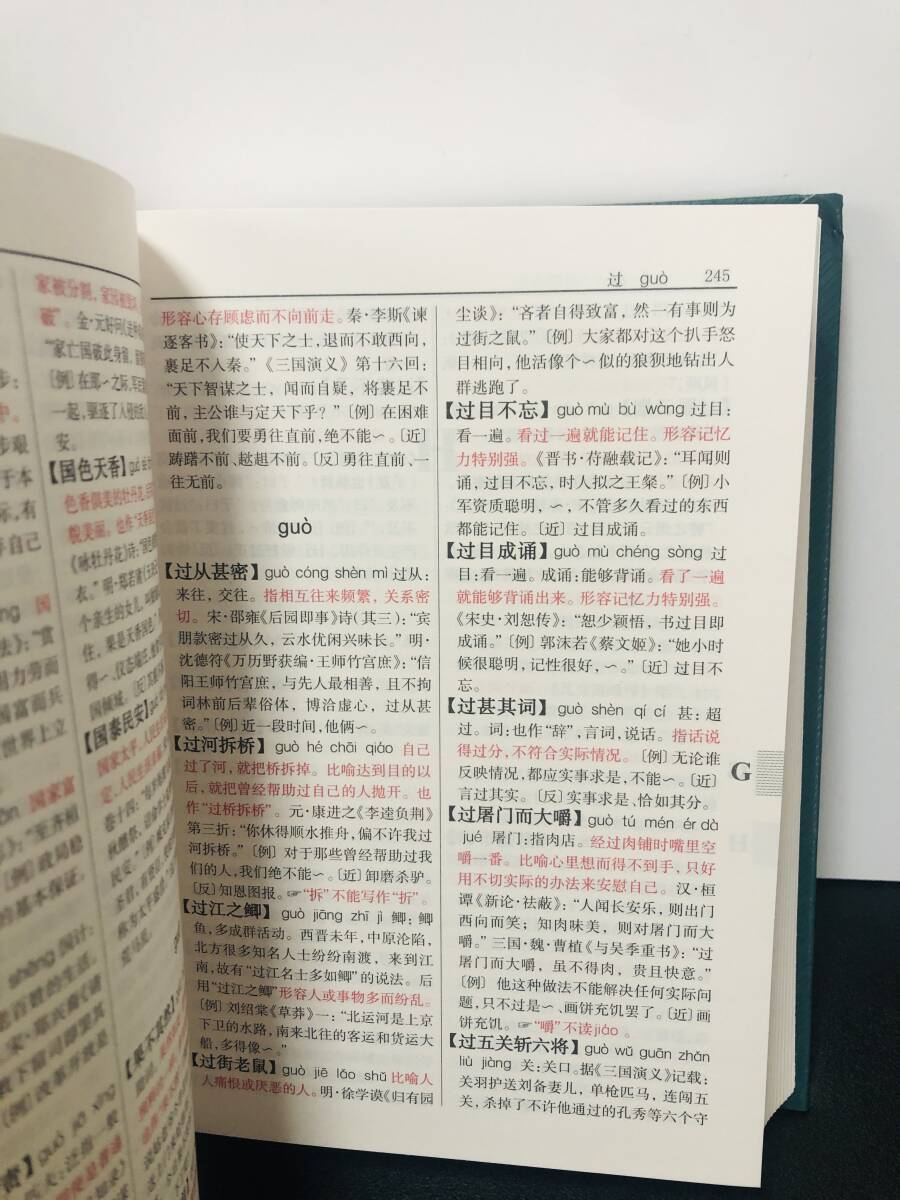 家被分割，家园被毁灭
破”。金·元好问《
“家亡国破此身留，
〔例〕在那～之际，
一起，驱逐了入侵
安。
【国色天香】
色香俱美的牡丹花，
貌美丽。也作“天香
《咏牡丹花》诗：“国色
衣。”明·郑若庸《玉
个亲生的女儿，
【国泰民安】
国家太平，人民生
过 guò 245
形容心存顾虑而不向前走。秦·李斯《谏
逐客书》：“使天下之士，退而不敢西向，
裹足不入秦。”《三国演义》第十六回：
“天下智谋之士，闻而自疑，将裹足不
前，主公谁与定天下乎？”〔例〕在困难
面前，我们要勇往直前，绝不能～。〔近〕
踌躇不前、趑趄不前。〔反〕勇往直前、一
往无前。
guò
【过从甚密】guò cóng shèn mì 过从：
来往，交往。指相互往来频繁，关系密
切。宋·邵雍《后园即事》诗（其三）：“宾
朋款密过从久，云水优闲兴味长。”明·
沈德符《万历野获编·王师竹宫庶》：“信
阳王师竹宫庶，与先人最相善，且不拘
词林前后辈俗体，博洽虚心，过从甚
密。”〔例〕近一段时间，他俩～。
【过河拆桥】guò hé chāi qiáo 自己
过了河，就把桥拆掉。比喻达到目的以
后，就把曾经帮助过自己的人抛开。也
作“过桥拆桥”。元·康进之《李逵负荆》
第三折：“你休得顺水推舟，偏不许我过
河拆桥。”〔例〕对于那些曾经帮助过我
们的人，我们绝不能～。〔近〕卸磨杀驴。
〔反〕知恩图报。☞“拆”不能写作“折”。
【过江之鲫】guò jiāng zhī jì 鲫：鲫
鱼，多成群活动。西晋末年，中原沦陷，
北方很多知名人士纷纷南渡，来到江
南，故有“过江名士多如鲫”的说法。后
用“过江之鲫”形容人或事物多而纷乱。
〔例〕刘绍棠《草莽》一：“北运河是上京
下卫的水路，南来北往的客运和货运大
船，多得像～。”
【过街老鼠】guò jiē lǎo shǔ 比喻人
人痛恨或厌恶的人。明·徐学谟《归有园
尘谈》：“吝者自得致富，然一有事则为
过街之鼠。”〔例〕大家都对这个扒手怒
目相向，他活像个～似的狼狈地钻出人
群逃跑了。
【过目不忘】guò mù bù wàng 过目：
看一遍。看过一遍就能记住。形容记忆
力特别强。《晋书·苻融载记》：“耳闻则
诵，过目不忘，时人拟之王粲。”〔例〕小
军资质聪明，～，不管多久看过的东西
都能记住。〔近〕过目成诵。
【过目成诵】guò mù chéng sòng 过
目：看一遍。成诵：能够背诵。看了一遍
就能够背诵出来。形容记忆力特别强。
《宋史·刘恕传》：“恕少颖悟，书过目即
成诵。”〔例〕郭沫若《蔡文姬》：“她小时
候很聪明，记性很好，～。”〔近〕过目不
忘。
【过甚其词】guò shèn qí cí 甚：超
过。词：也作“辞”，言词，说话。指话说
得过分，不符合实际情况。〔例〕无论谁
反映情况，都应实事求是，不能～。〔近〕
言过其实。〔反〕实事求是、恰如其分。
【过屠门而大嚼】guò tú mén ér dà
jué 屠门：指肉店。经过肉铺时嘴里空
嚼一番。比喻心里想而得不到手，只好
用不切实际的办法来安慰自己。汉·桓
谭《新论·祛蔽》：“人闻长安乐，则出门
西向而笑；知肉味美，则对屠门而大
嚼。”三国·魏·曹植《与吴季重书》：“过
屠门而大嚼，虽不得肉，贵且快意。”
〔例〕他这种做法不能解决任何实际问
题，只不过是～、画饼充饥罢了。〔近〕画
饼充饥。☞“嚼”不读jiáo。
【过五关斩六将】guò wǔ guān zhǎn
liù jiàng 关：关口。据《三国演义》记载：
关羽护送刘备妻儿，单枪匹马，连闯五
关，杀掉了不许他通过的孔秀等六个守
G